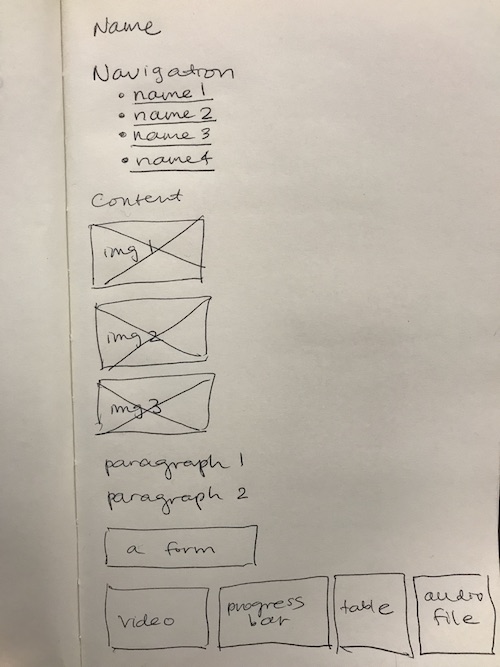 Name
Navigation
• name 1
• name 2
• name 3
• name4
Content
img 1
img 2
img 3
paragraph 1
paragraph 2
a form
video
progress
bar
table
audio
file